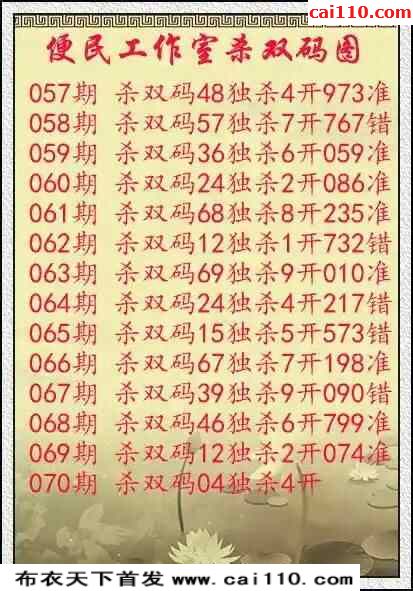 cai110.com
便民工作室杀双码图
057期 杀双码48独杀4开973准
058期 杀双码57独杀7开767错
059期 杀双码36独杀6开059准
060期 杀双码24独杀2开086准
061期 杀双码68独杀8开235准
062期 杀双码12独杀1开732错
063期 杀双码69独杀9开010准
064期 杀双码24独杀4开217错
065期 杀双码15独杀5开573错
066期 杀双码67独杀7开198准
067期 杀双码39独杀9开090错
068期 杀双码46独杀6开799准
069期 杀双码12独杀2开074准
070期 杀双码04独杀4开
布衣天下首发 www.cai110.com